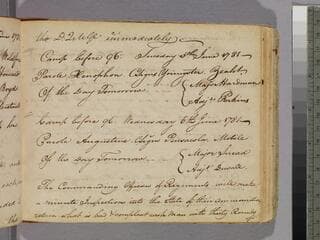 the D: immediately
Camp before 96 Tuesday 5th June 1781
Parole Xenophon CSigns Youngster Zealot
Of the Day Tomorrow Major Hardman
Adjt Perkins
Camp before 96 Wednesday 6th June 1781
Parole Augustine CSigns Pensacola Mobile
Of the Day Tomorrow Major Snead
Adjt Duvall
The Commanding Officers of Regiments will make
minute Inspection into the State of their ammunition
return what is bad & compleat each Man with thirty Rounds